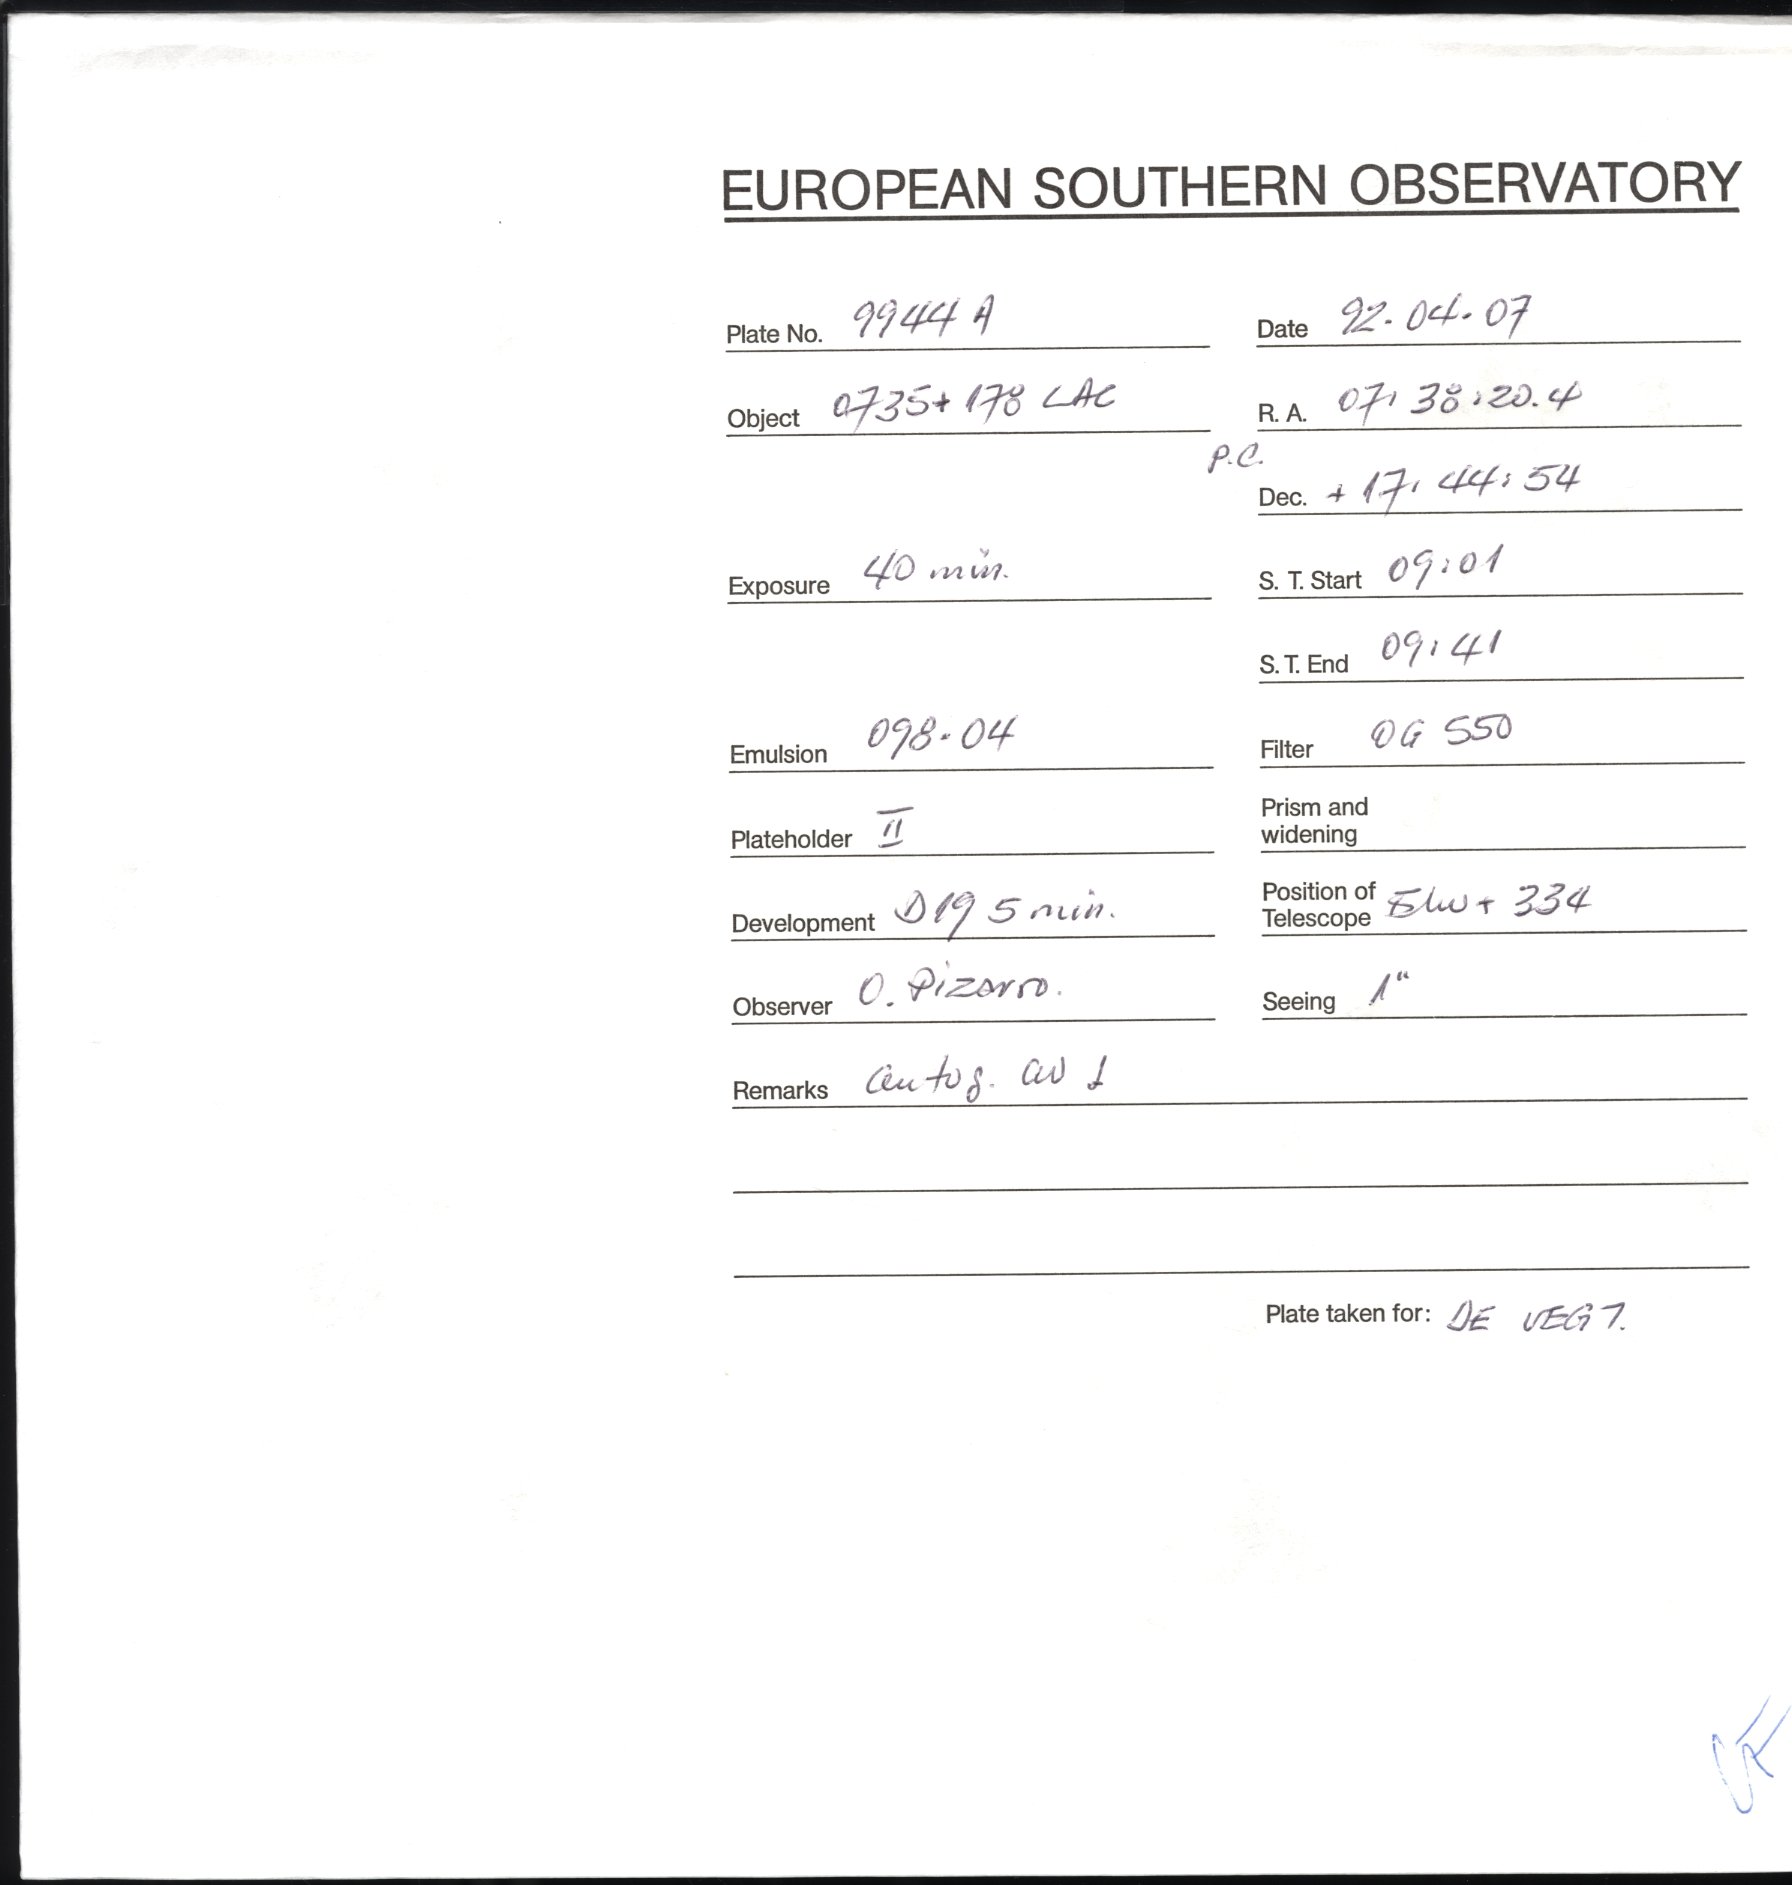 EUROPEAN SOUTHERN OBSERVATORY
Plate No. 9944 A Date 92-04-07
Object 0735+178 LAC R. A. 07:38:20.4
P.C.
Dec. + 17:44:54
Exposure 40 min. S. T. Start 09:01
S. T. End 09:41
Emulsion 098-04 Filter OG 550
Plateholder II Prism and
widening
Development D19 5 min. Position of
Telescope + 334
Observer O. Pizarro. Seeing 1"
Remarks autog.
Plate taken for: DE VEGT.